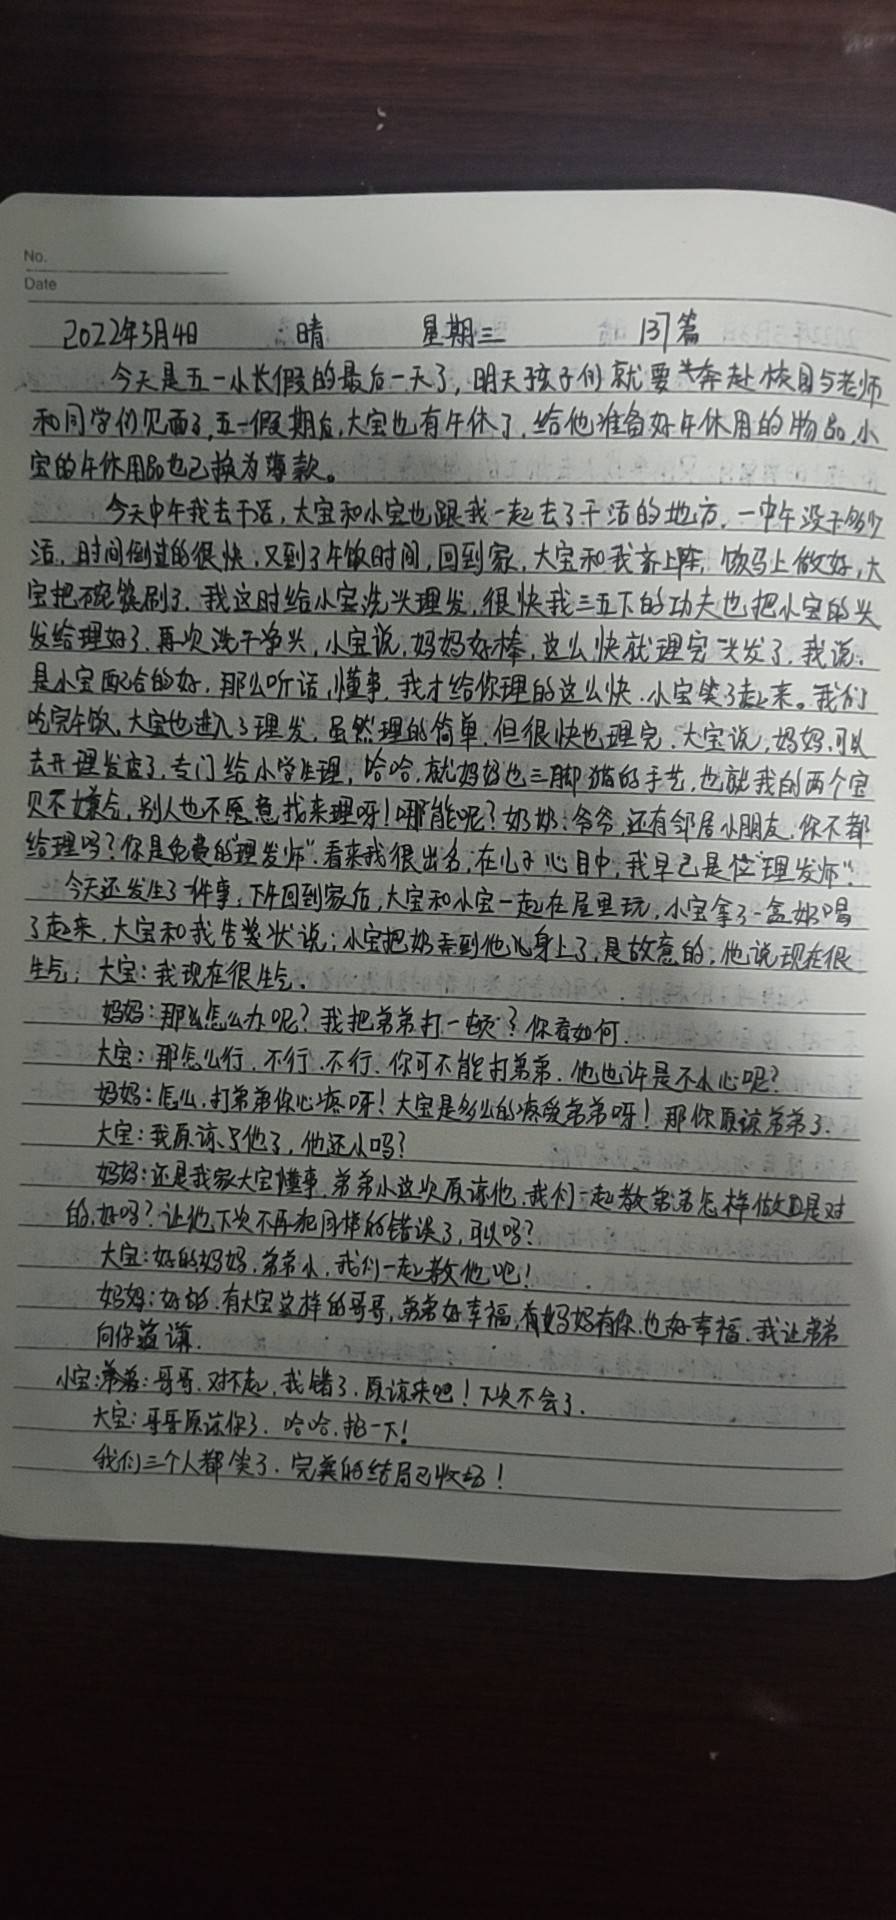 No.
Date
2022年5月4日 晴 星期三 137篇
今天是五一小长假的最后一天了,明天孩子们就要奔赴校园与老师
和同学们见面了,五一假期后,大宝也有午休了,给他准备好午休用的物品,小
宝的午休用品也已换为薄款。
今天中午我去干活,大宝和小宝也跟我一起去了干活的地方,一中午没干多少
活,时间倒过的很快,又到了午饭时间,回到家,大宝和我齐上阵,饭马上做好,大
宝把碗筷刷了,我这时给小宝洗头理发,很快我三五下的功夫也把小宝的头
发给理好了,再次洗干净头,小宝说,妈妈好棒,这么快就理完头发了,我说:
是小宝配合的好,那么听话,懂事,我才给你理的这么快,小宝笑了起来。我们
吃完午饭,大宝也进入了理发,虽然理的简单,但很快也理完,大宝说,妈妈,可以
去开理发店了,专门给小学生理,哈哈,就妈妈也三脚猫的手艺,也就我的两个宝
贝不嫌弃,别人也不愿意找来理呀!哪能呢?奶奶:爷爷,还有邻居小朋友,你不都
给理吗?你是免费的"理发师",看来我很出名,在儿子心目中,我早已是位"理发师"。
今天还发生了一件事,下午回到家后,大宝和小宝一起在屋里玩,小宝拿了一盒奶喝
了起来,大宝和我告状说:小宝把奶弄到他身上了,是故意的,他说现在很
生气,大宝:我现在很生气,
妈妈:那么怎么办呢?我把弟弟打一顿?你看如何,
大宝:那怎么行,不行,不行,你可不能打弟弟,他也许是不小心呢?
妈妈:怎么,打弟弟你心疼呀!大宝是多么的疼爱弟弟呀!那你原谅弟弟了,
大宝:我原谅了他了,他还小吗?
妈妈:还是我家大宝懂事,弟弟小这次原谅他,我们一起教弟弟怎样做才是对
的,好吗?让他下次不再犯同样的错误了,可以吗?
大宝:好的妈妈,弟弟小,我们一起教他吧!
妈妈:好的,有大宝这样的哥哥,弟弟好幸福,妈妈有你,也好幸福,我让弟弟
向你道谦,
小宝:哥哥,对不起,我错了,原谅我吧!下次不会了,
大宝:哥哥原谅你了,哈哈,抱一下!
我们三个人都笑了,完美的结局已收场!